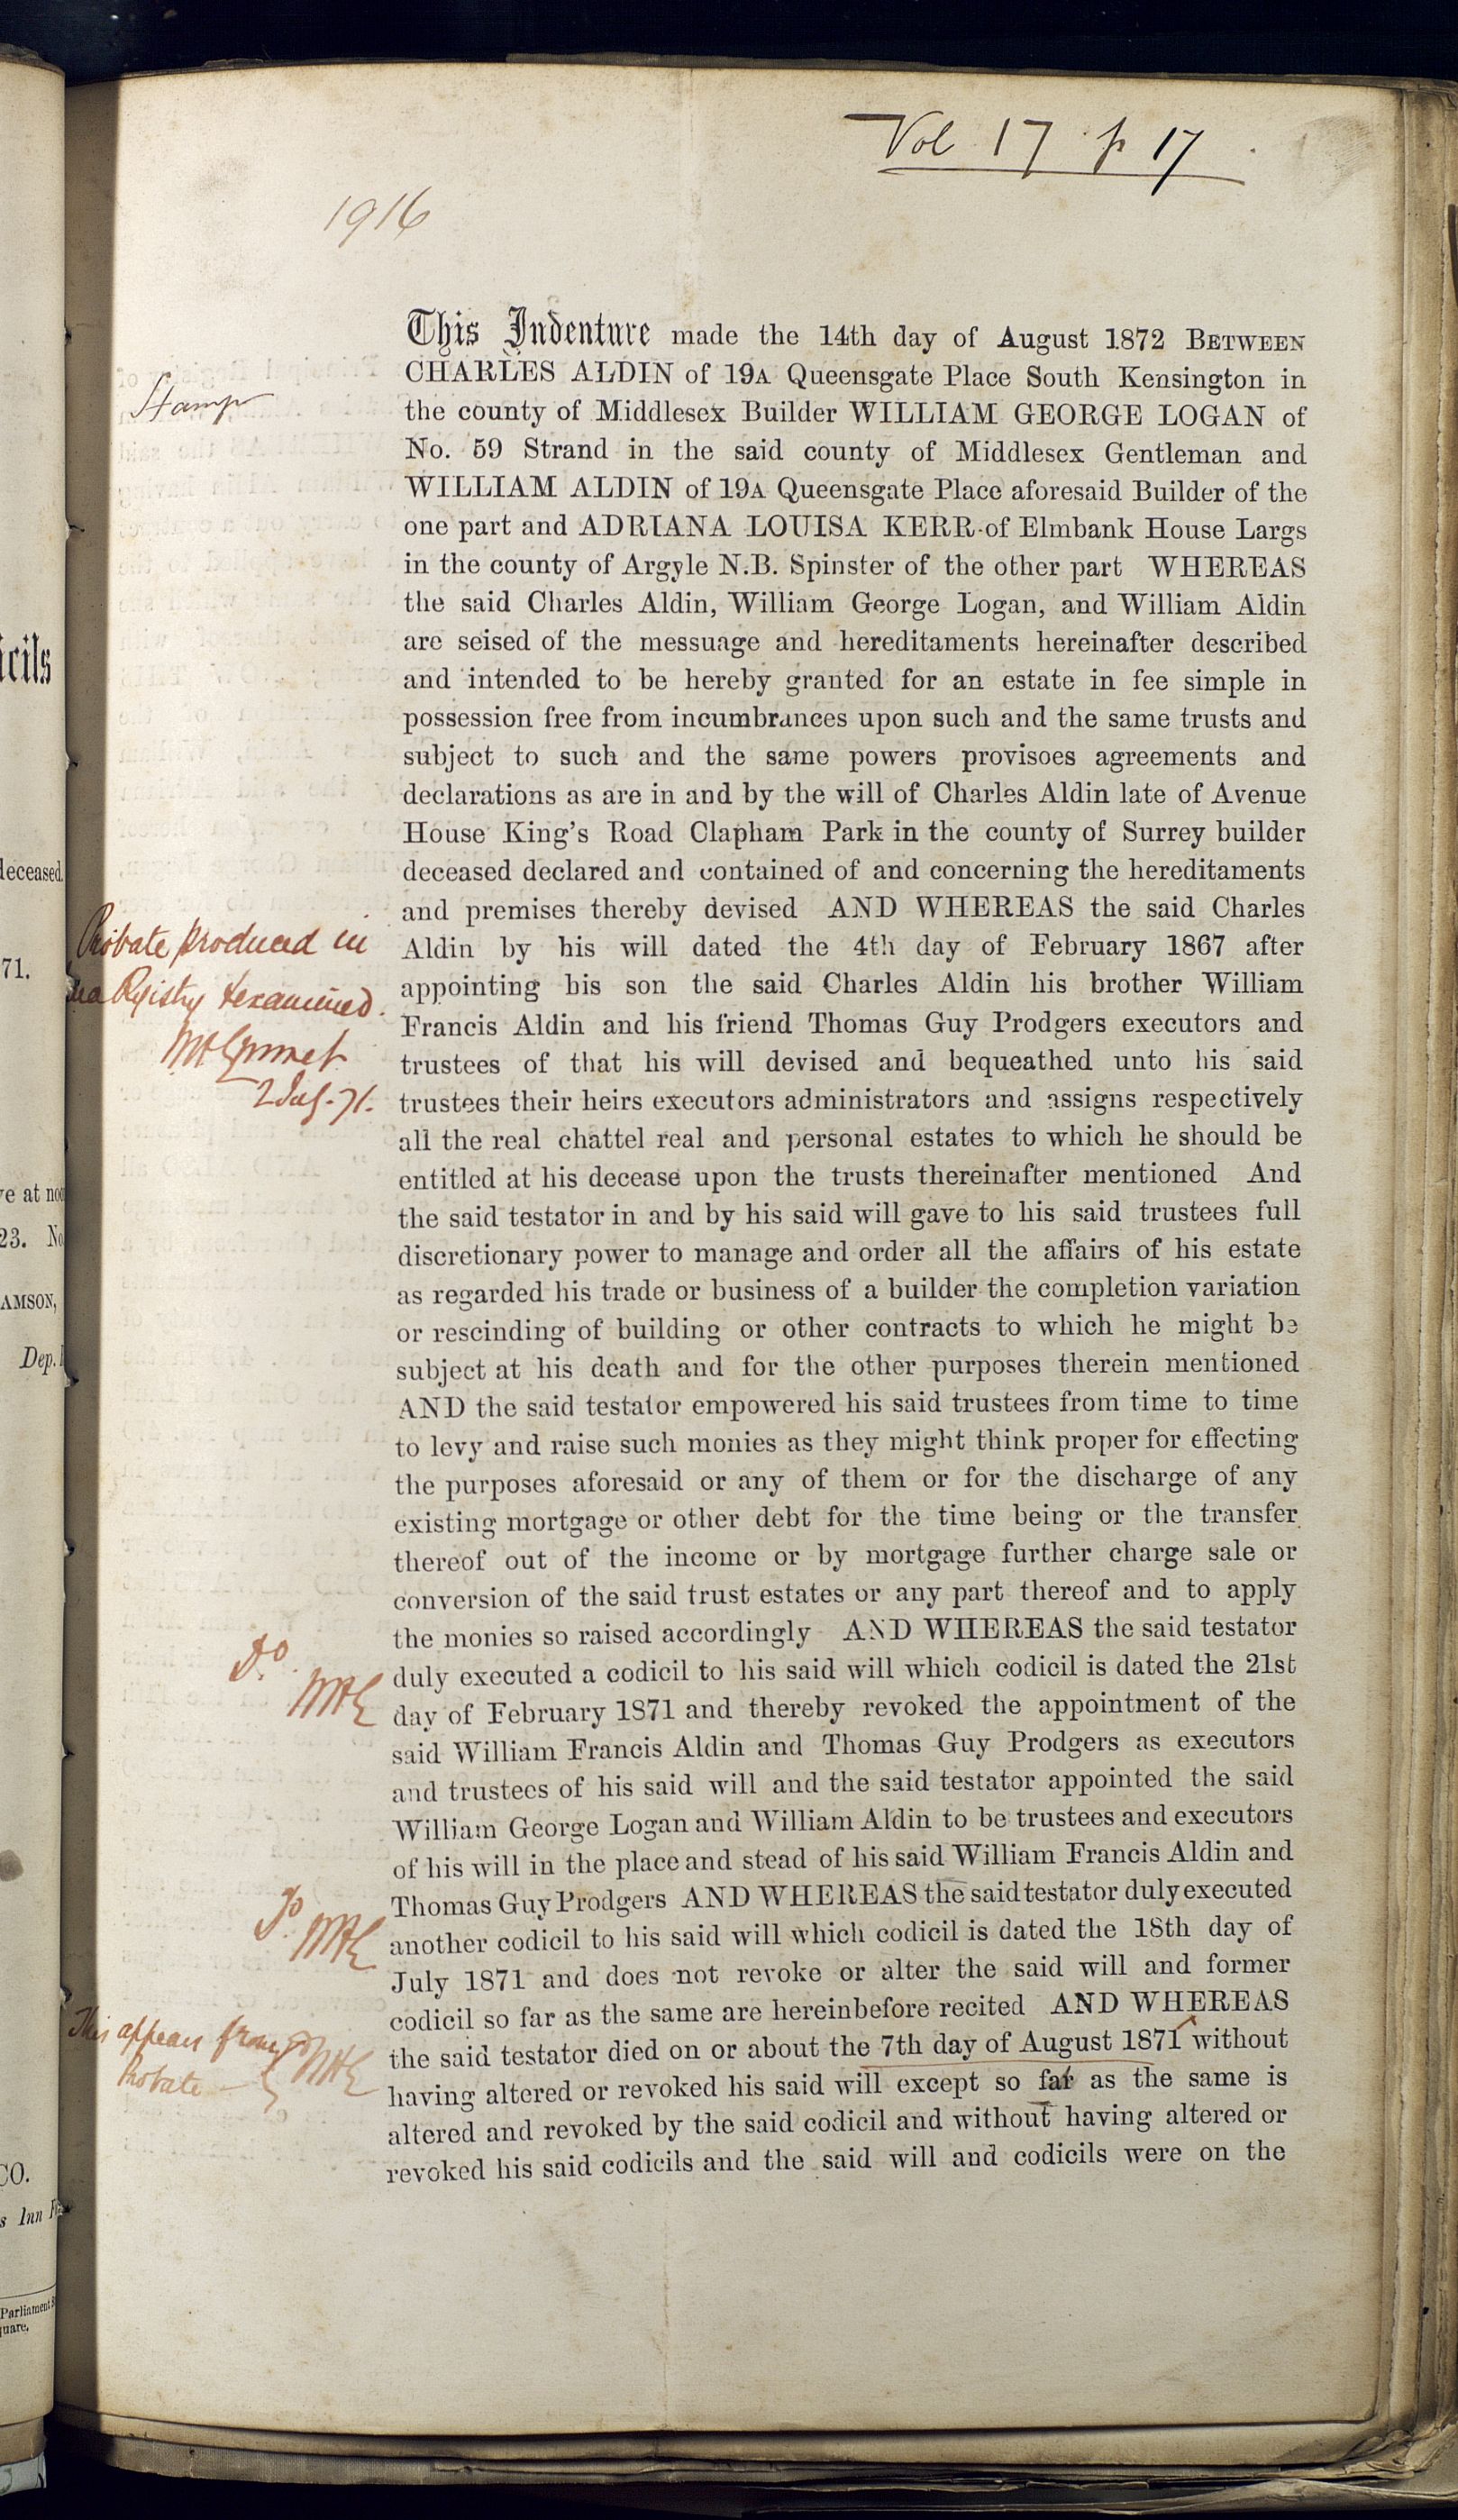 Vol 17 p 17
1916
Stamp
This Indenture made the 14th day of August 1872 BETWEEN
CHARLES ALDIN of 19A Queensgate Place South Kensington in
the county of Middlesex Builder WILLIAM GEORGE LOGAN of
No. 59 Strand in the said county of Middlesex Gentleman and
WILLIAM ALDIN of 19A Queensgate Place aforesaid Builder of the
one part and ADRIANA LOUISA KERR of Elmbank House Largs
in the county of Argyle N.B. Spinster of the other part WHEREAS
the said Charles Aldin, William George Logan, and William Aldin
are seised of the messuage and hereditaments hereinafter described
and intended to be hereby granted for an estate in fee simple in
possession free from incumbrances upon such and the same trusts and
subject to such and the same powers provisoes agreements and
declarations as are in and by the will of Charles Aldin late of Avenue
House King's Road Clapham Park in the county of Surrey builder
deceased declared and contained of and concerning the hereditaments
and premises thereby devised AND WHEREAS the said Charles
Aldin by his will dated the 4th day of February 1867 after
appointing his son the said Charles Aldin his brother William
Francis Aldin and his friend Thomas Guy Prodgers executors and
trustees of that his will devised and bequeathed unto his said
trustees their heirs executors administrators and assigns respectively
all the real chattel real and personal estates to which he should be
entitled at his decease upon the trusts thereinafter mentioned And
the said testator in and by his said will gave to his said trustees full
discretionary power to manage and order all the affairs of his estate
as regarded his trade or business of a builder the completion variation
or rescinding of building or other contracts to which he might be
subject at his death and for the other purposes therein mentioned
AND the said testator empowered his said trustees from time to time
to levy and raise such monies as they might think proper for effecting
the purposes aforesaid or any of them or for the discharge of any
existing mortgage or other debt for the time being or the transfer
thereof out of the income or by mortgage further charge sale or
conversion of the said trust estates or any part thereof and to apply
the monies so raised accordingly AND WHEREAS the said testator
duly executed a codicil to his said will which codicil is dated the 21st
day of February 1871 and thereby revoked the appointment of the
said William Francis Aldin and Thomas Guy Prodgers as executors
and trustees of his said will and the said testator appointed the said
William George Logan and William Aldin to be trustees and executors
of his will in the place and stead of his said William Francis Aldin and
Thomas Guy Prodgers AND WHEREAS the said testator duly executed
another codicil to his said will which codicil is dated the 18th day of
July 1871 and does not revoke or alter the said will and former
codicil so far as the same are hereinbefore recited AND WHEREAS
the said testator died on or about the 7th day of August 1871 without
having altered or revoked his said will except so far as the same is
altered and revoked by the said codicil and without having altered or
revoked his said codicils and the said will and codicils were on the
Probate produced in
Registry & examined.
Do.
Do.
This appears from
Probate
icils
deceased.
71.
23. No
AMSON,
Dep.
CO.
s Inn
Parliament
quare.